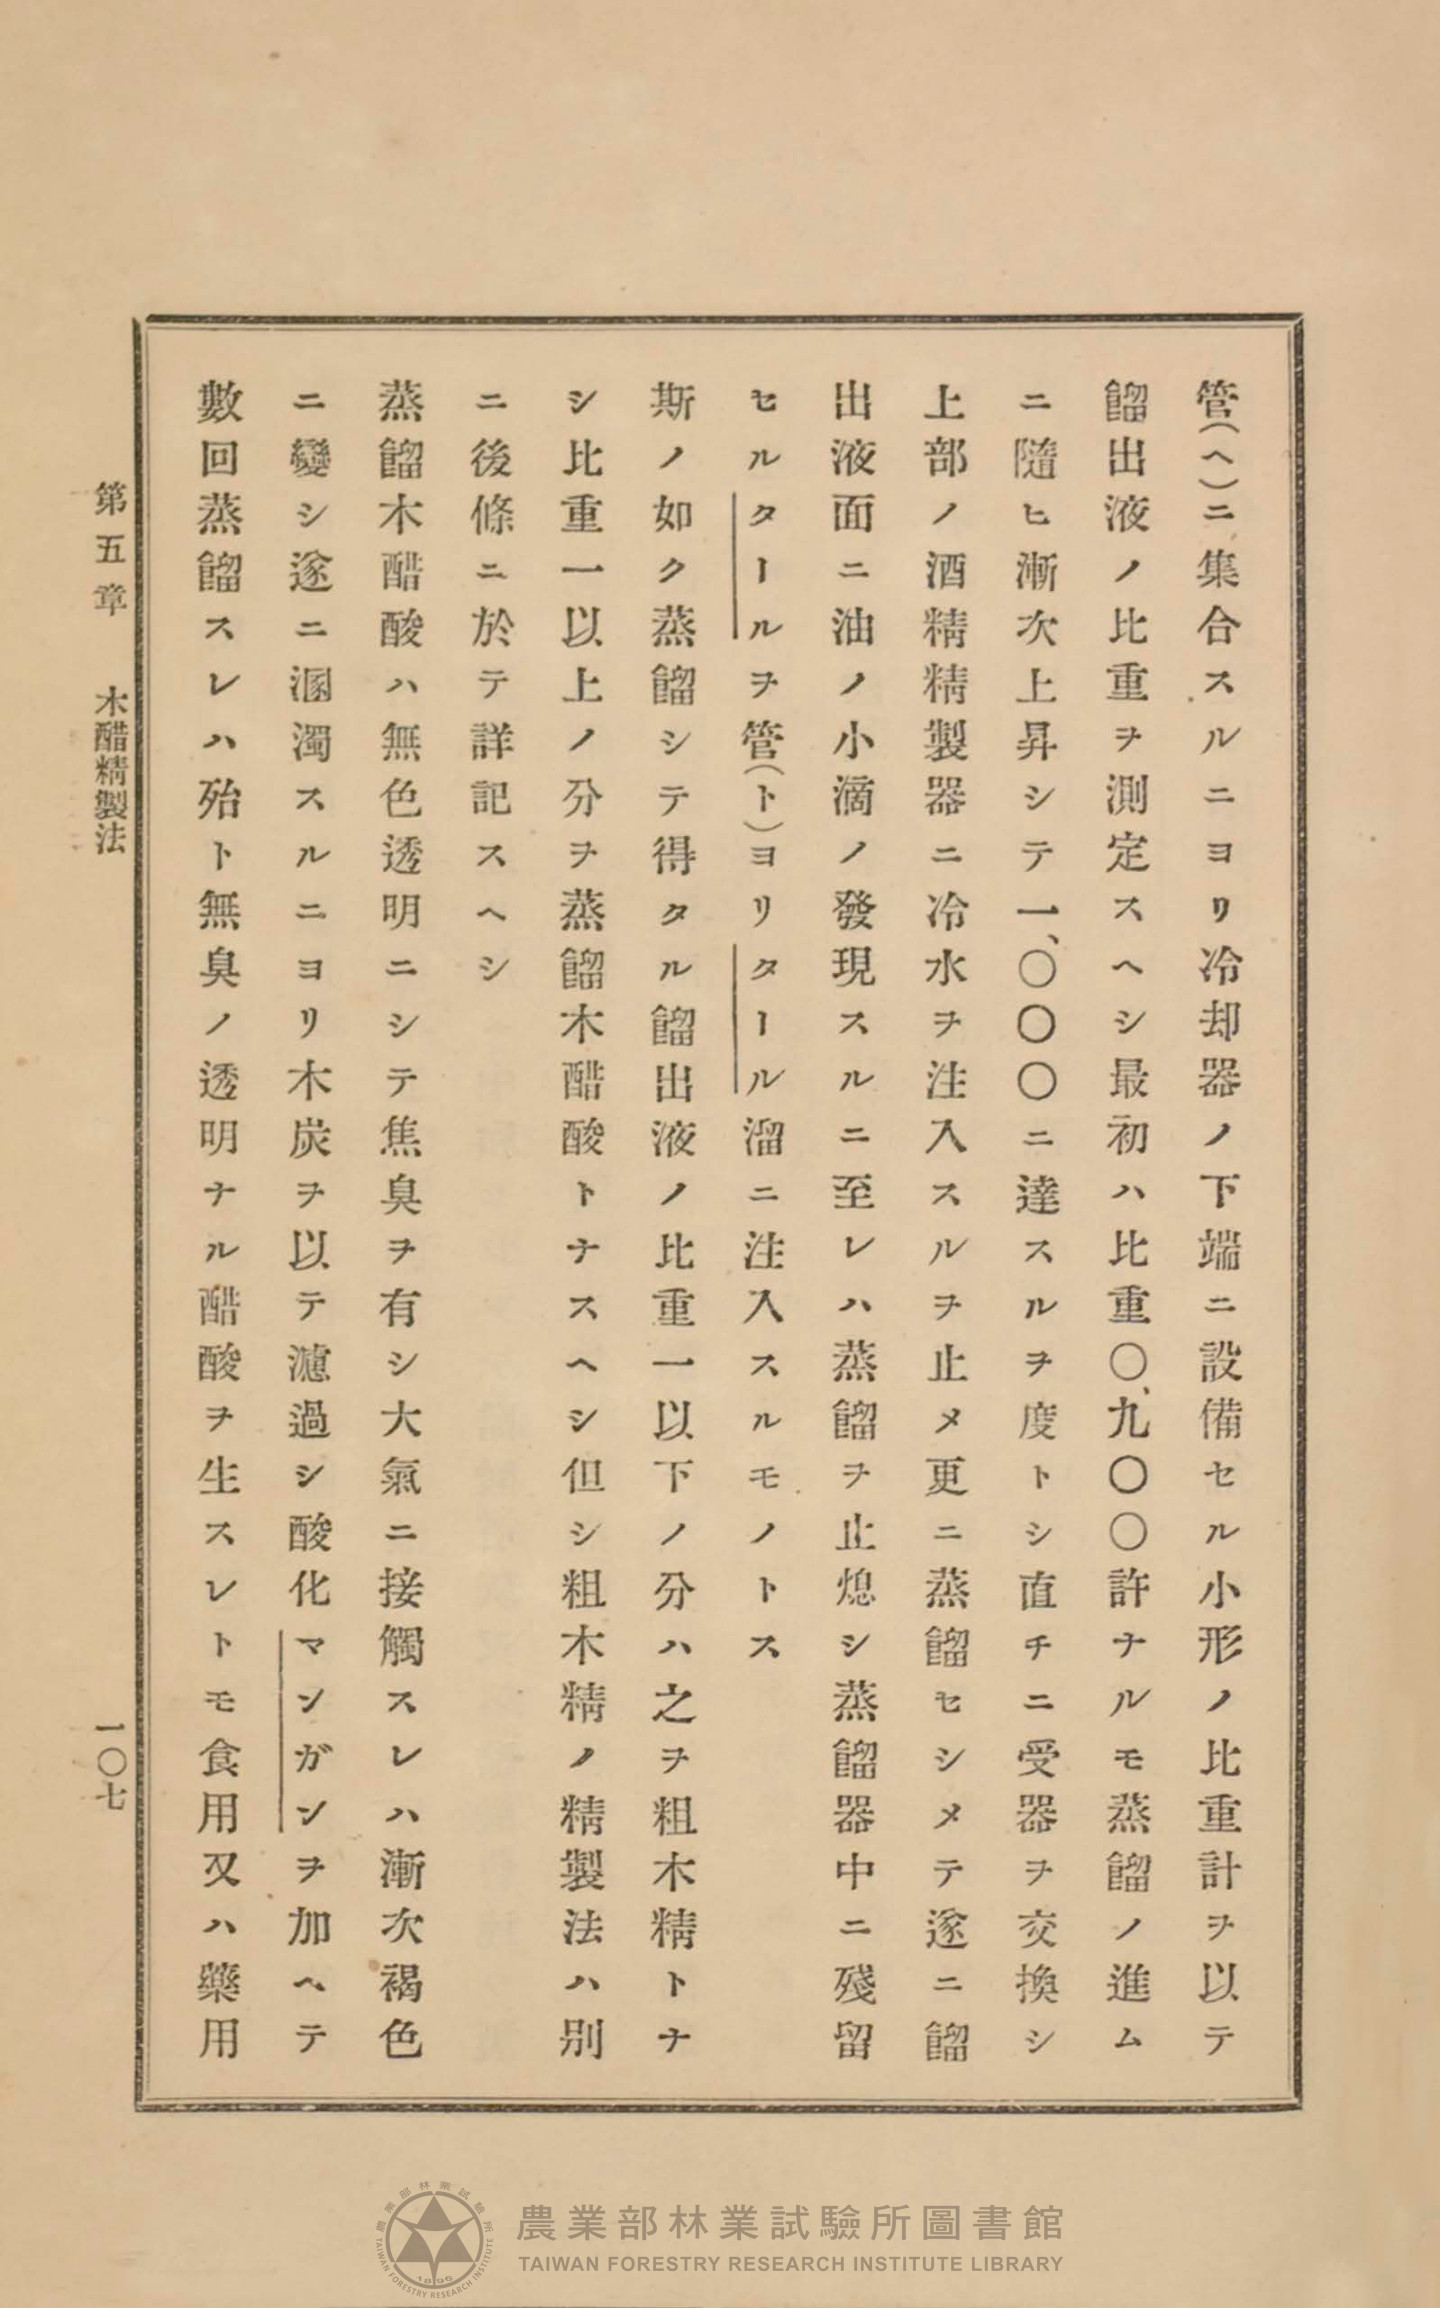 管(ヘ)ニ集合スルニヨリ冷却器ノ下端ニ設備セル小形ノ比重計ヲ以テ
餾出液ノ比重ヲ測定スヘシ最初ハ比重〇、九〇〇許ナルモ蒸餾ノ進ム
ニ隨ヒ漸次上昇シテ一、〇〇〇ニ達スルヲ度トシ直チニ受器ヲ交換シ
上部ノ酒精精製器ニ冷水ヲ注入スルヲ止メ更ニ蒸餾セシメテ遂ニ餾
出液面ニ油ノ小滴ノ發現スルニ至レハ蒸餾ヲ止熄シ蒸餾器中ニ殘留
セルタールヲ管(ト)ヨリタール溜ニ注入スルモノトス
斯ノ如ク蒸餾シテ得タル餾出液ノ比重一以下ノ分ハ之ヲ粗木精トナ
シ比重一以上ノ分ヲ蒸餾木醋酸トナスヘシ但シ粗木精ノ精製法ハ別
ニ後條ニ於テ詳記スヘシ
蒸餾木醋酸ハ無色透明ニシテ焦臭ヲ有シ大氣ニ接觸スレハ漸次褐色
ニ變シ遂ニ溷濁スルニヨリ木炭ヲ以テ濾過シ酸化マンガンヲ加ヘテ
數回蒸餾スレハ殆ト無臭ノ透明ナル醋酸ヲ生スレトモ食用又ハ藥用
第五章 木醋精製法
一〇七
農業部林業試驗所圖書館
TAIWAN FORESTRY RESEARCH INSTITUTE LIBRARY
農業部林業試驗所
TAIWAN FORESTRY RESEARCH INSTITUTE
1896